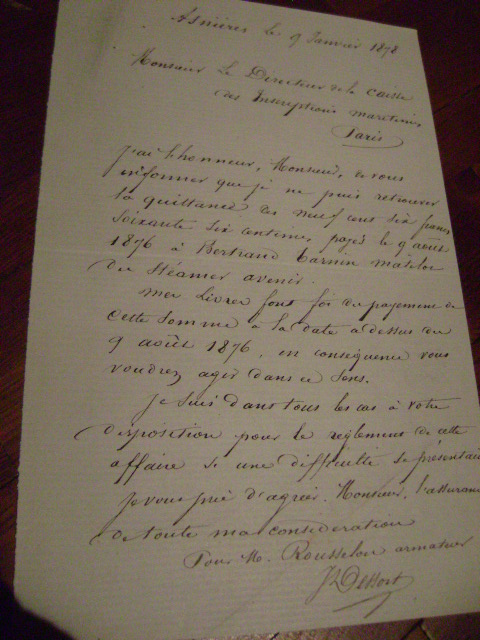 Asnières le 9 Janvier 1878
Monsieur Le Directeur de la Caisse
des Inscriptions maritimes
Paris
J'ai l'honneur, Monsieur, de vous
informer que je ne puis retrouver
la quittance des neuf cent six francs
soixante six centimes, payés le 9 août
1876 à Bertrand matelot
du Stéamer avenir.
Mes Livres font foi du payement de
cette somme à la date a dessus du
9 août 1876, en conséquence vous
voudrez agir dans ce sens.
Je suis dans tous les cas à votre
disposition pour le règlement de cette
affaire si une difficulté se présentait
Je vous prie d'agréer, Monsieur, l'assurance
de toute ma considération
Pour M. Rousselou armateur